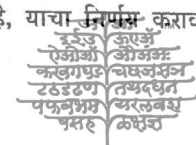 है, याचा निर्णय कराव
इईउ ऊएॲ
ऐओऑ औअंअः
कखगघङ चछजझञ
टठडढण तथदधन
पफबभम यरलवश
षसह ळक्षज्ञ